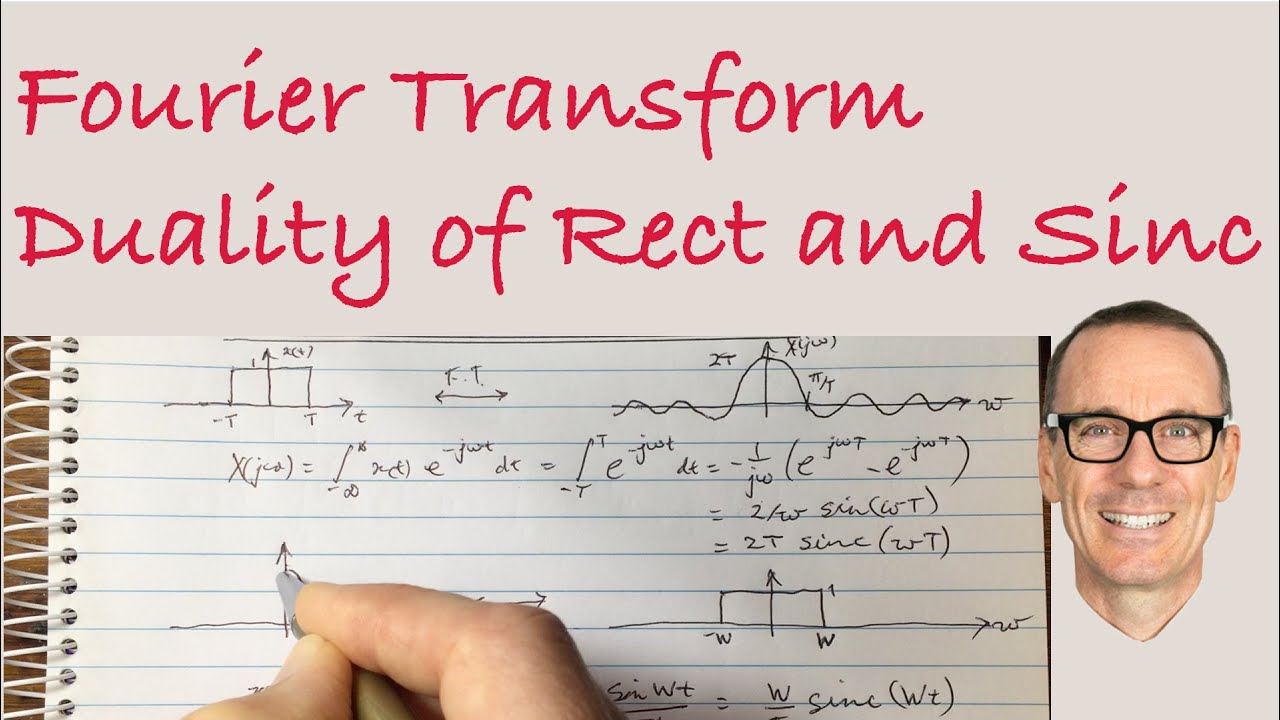 Fourier Transform
Duality of Rect and Sinc
1 x(t) F.T. 2T X(jω) π/T
-T T t ω
X(jω) = ∫_{-∞}^{∞} x(t) e^{-jωt} dt = ∫_{-T}^{T} e^{-jωt} dt = -1/jω (e^{jωT} - e^{-jωT})
= 2/ω sin(ωT)
= 2T sinc(ωT)
1
-W W ω
sin Wt = W sinc(Wt)